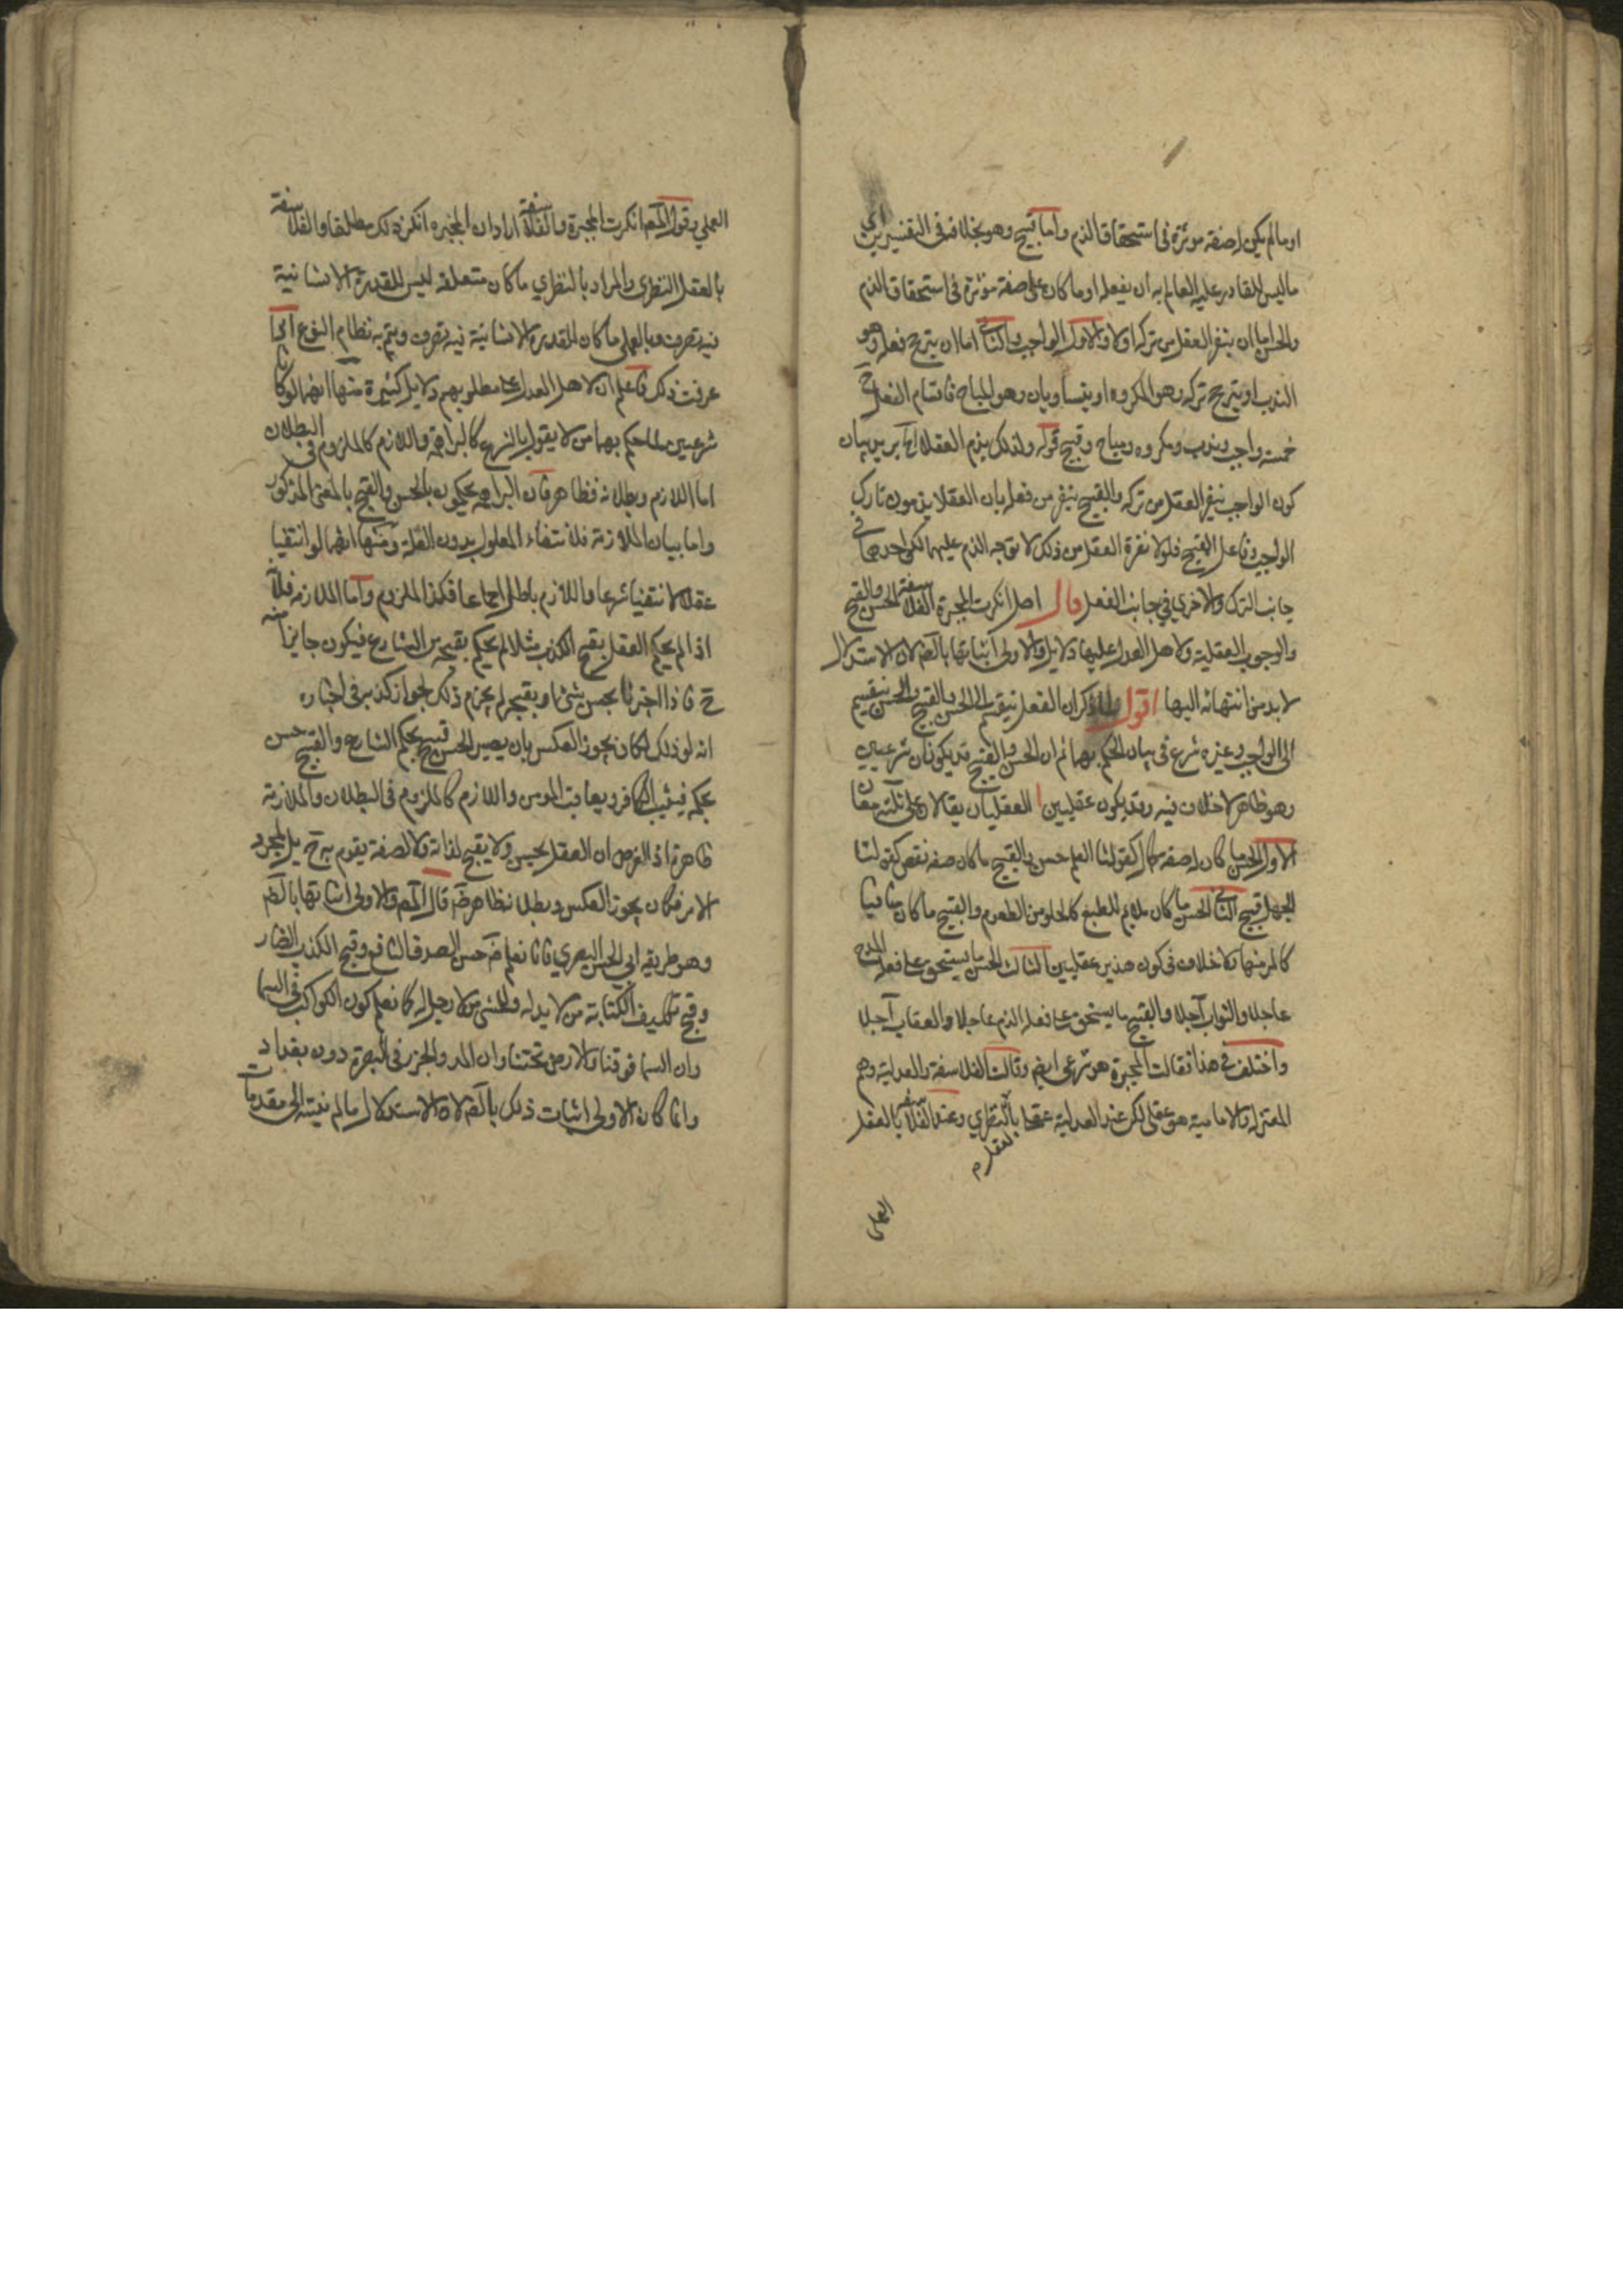 او ما لم يكن له صفة موثرة فى استحقاق الذم واما قبيح وهو بخلافه فى التفسيرين اى
ما ليس للقادر عليه العالم به ان يفعله او ما كان على صفة موثرة فى استحقاق الذم
والحسن اما ان ينفر العقل من تركه اولا والاول الواجب والثانى اما ان يترجح فعله وهو
الندب او يترجح تركه وهو المكروه او يتساويان وهو المباح فاقسام الفعل ح
خمسة واجب وندب ومكروه ومباح وقبيح قوله ولذلك يذم العقلاء يريد بيان
كون الواجب ينفر العقل من تركه والقبيح ينفر من فعله بان العقلا يذمون تارك
الواجب وفاعل القبيح فلولا نفرة العقل من ذلك لا توجه الذم عليهما لكن احدهما فى
جانب الترك والاخرى فى جانب الفعل قال اصل انكرت المجبرة والفلاسفة الحسن والقبح
والوجوب العقلية ولاهل العدل عليها دلايل والاولى اثباتها بالضم لان الاستدلال
لا بد من انتهائه اليها اقول لما ذكر ان الفعل ينقسم الى الحسن والقبيح والحسن ينقسم
الى الواجب وغيره شرع فى بيان الحكم بهما ثم ان الحسن والقبيح قد يكونان شرعيين
وهو ظاهر لا خلاف فيه وقد يكون عقليين العقليان يقالان على ثلثة معان
الاول الحسن ما كان له صفة كمال كقولنا العلم حسن والقبيح ما كان صفة نقص كقولنا
الجهل قبيح الثانى الحسن ما كان ملايم للطبع كالحلو من الطعوم والقبيح ما كان منافيا
كالمر منها ولا خلاف فى كون هذين عقليين الثالث الحسن ما يستحق على فعله المدح
عاجلا والثواب آجلا والقبيح ما يستحق على فعله الذم عاجلا والعقاب آجلا
واختلف فى هذا فقالت المجبرة هو شرعى ايض وقالت الفلاسفة والعدلية وهم
المعتزلة والامامية هو عقلى لكن عند العدلية بالعقل النظرى وعند الفلاسفة بالعقل
العملى
العملي وقول المص انكرت المجبرة والفلاسفة اراد ان المجبره انكرن ذلك مطلقا والفلاسفة
بالعقل النظرى والمراد بالنظري ما كان متعلقه ليس للقدرة الانسانية
فيه تصرف وبالعملى ما كان للقدرة الانسانية فيه تصرف ويتم به نظام النوع اذا
عرفت ذلك فاعلم ان لاهل العدل على مطلوبهم دلايل كثيرة منها انهما لو كانا
شرعيين لما حكم بهما من لا يقول بالشرع كالبراهمة واللازم كالملزوم فى البطلان
اما اللازم وبطلانه فظاهر فان البراهمه يحكمون بالحسن والقبح بالمعنى المذكور
واما بيان الملازمة فلانتفاء المعلول بدون العلة ومنها انهما لو انتفيا
عقلا لانتفيا شرعا واللازم باطل اجماعا فكذا الملزوم واما الملازمة فلانه
اذا لم يحكم العقل بقبح الكذب مثلا لم يحكم بقبحه من الشارع فيكون جايزا منه
ح فاذا اخبرنا بحسن شئ او بقبحه لم يجزم ذلك لجواز كذبه فى اخباره
انه لو ذلك لكان يجوز العكس بان يصير الحسن قبيح بحكم الشارع والقبيح حسن
بحكمه فيثيب الكافر ويعاقب المومن واللازم كالملزوم فى البطلان والملازمة
ظاهرة اذ الفرض ان العقل لا يحسن ولا يقبح لذاته ولا لصفة يقوم به ح بل لمجرد
الامر فكان يجوز العكس وبطلانه ظاهر ضم قال المص والاولى اثباتها بالضم
وهو طريقه ابى الحسن البصري فانا نعلم ضم حسن الصدق النافع وقبح الكذب الضار
وقبح تكليف الكتابة من لا يد له والمشى من لا رجل له كما نعلم كون الكواكب فى السما
وان السما فوقنا والارض تحتنا وان المد والجزر فى البصرة دون بغداد
وانما كان الاولى اثبات ذلك بالضم لان الاستدلال ما لم ينته الى مقدمات